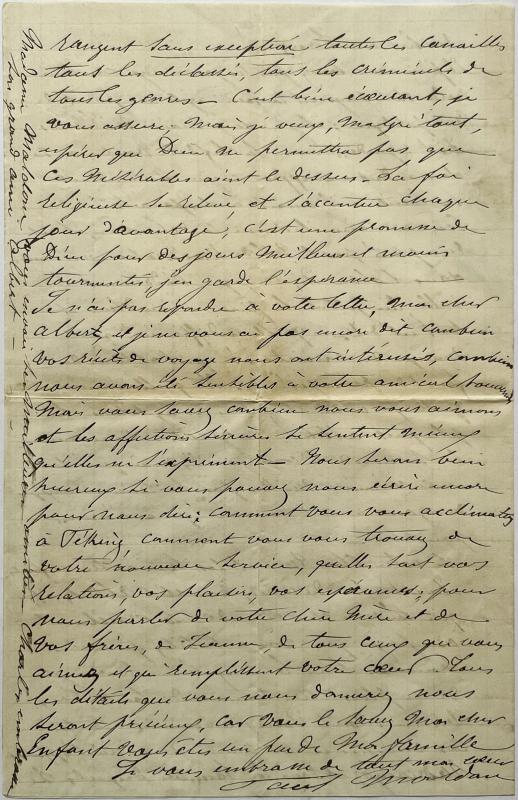 rangent sans exception toutes les canailles
tous les déclassés, tous les criminels de
tous les genres – C'est bien écœurant, je
vous assure, mais je veux, malgré tout,
espérer que Dieu ne permettra pas que
ces misérables aient le dessus – La foi
religieuse se relève et s'accentue chaque
jour d'avantage, c'est une promesse de
Dieu pour des jours meilleurs et moins
tourmentés, j'en garde l'espérance –
Je n'ai pas répondu à votre lettre, mon cher
Albert, et je ne vous ai pas encore dit combien
vos récits de voyage nous ont intéressés, combien
nous avons été sensibles à votre amical souvenir
Mais vous savez combien nous vous aimons
et les affections sincères se sentent mieux
qu'elles ne s'expriment – Nous serons bien
heureux si vous pouvez nous écrire encore
pour nous dire comment vous vous acclimatez
à Péking, comment vous vous trouvez de
votre nouveau service, quelles sont vos
relations, vos plaisirs, vos espérances, pour
nous parler de votre chère Mère et de
vos frères, de Jeanne, de tous ceux que vous
aimez et qui remplissent votre cœur. Tous
les détails que vous nous donnerez nous
seront précieux, car vous le savez mon cher
Enfant vous êtes un peu de ma famille
Je vous embrasse de tout mon cœur
Madame vous envoie ses meilleures amitiés Charles embrasse
son grand ami Albert –